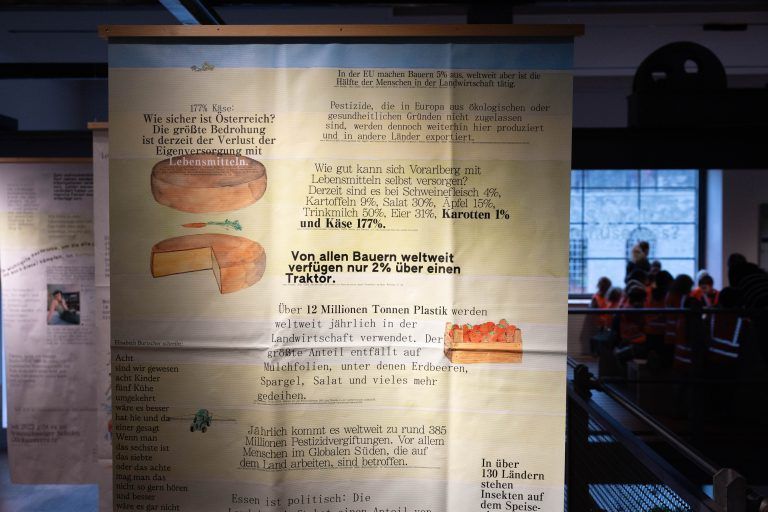 In der EU machen Bauern 5% aus, weltweit aber ist die
Hälfte der Menschen in der Landwirtschaft tätig.
177% Käse:
Wie sicher ist Österreich?
Die größte Bedrohung
ist derzeit der Verlust der
Eigenversorgung mit
Lebensmitteln.
Pestizide, die in Europa aus ökologischen oder
gesundheitlichen Gründen nicht zugelassen
sind, werden dennoch weiterhin hier produziert
und in andere Länder exportiert.
Wie gut kann sich Vorarlberg mit
Lebensmitteln selbst versorgen?
Derzeit sind es bei Schweinefleisch 4%,
Kartoffeln 9%, Salat 30%, Äpfel 15%,
Trinkmilch 50%, Eier 31%, Karotten 1%
und Käse 177%.
Von allen Bauern weltweit
verfügen nur 2% über einen
Traktor.
Über 12 Millionen Tonnen Plastik werden
weltweit jährlich in der
Landwirtschaft verwendet. Der
größte Anteil entfällt auf
Mulchfolien, unter denen Erdbeeren,
Spargel, Salat und vieles mehr
gedeihen.
Acht
sind wir gewesen
acht Kinder
fünf Kühe
umgekehrt
wäre es besser
hat hie und da
einer gesagt
Wenn man
das sechste ist
das siebte
oder das achte
mag man das
nicht so gern hören
und besser
wäre es gar nicht
Jährlich kommt es weltweit zu rund 385
Millionen Pestizidvergiftungen. Vor allem
Menschen im Globalen Süden, die auf
dem Land arbeiten, sind betroffen.
In über
130 Ländern
stehen
Insekten auf
dem Speise-
Essen ist politisch: Die